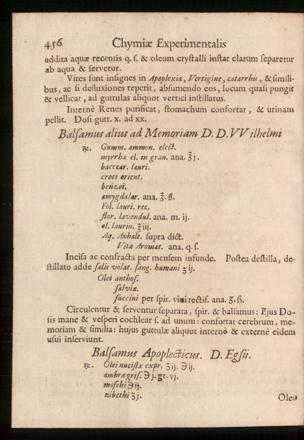 456 Chymiæ Experimentalis
addita aquæ recentis q. s. & oleum crystalli instar clarum separetur
ab aqua & servetur.
Vires sunt insignes in Apoplexia, Vertigine, catarrhis, & simili-
bus, ac si defluxiones reperit, absumendo eos, locum quasi pungit
& vellicat, ad guttulas aliquot vertici instillatus.
Internè Renes purificat, stomachum confortat, & urinam
pellit. Dosi gutt. x. ad xx.
Balsamus alius ad Memoriam D. D. VVilhelmi
℞. Gumm. ammon. elect.
myrrhæ el. in gran. ana. ℥j.
baccar. lauri.
croci orient.
benzoi.
amygdalar. ana. ℥. ß.
Fol. lauri. rec.
flor. lavendul. ana. m. ij.
ol. laurin. ℥iij.
Aq. Anhalt. supra dict.
Vitæ Aromat. ana. q. s.
Incisa ac confracta per mensem infunde. Postea destilla, de-
stillato adde salis volat. sang. humani ʒij.
Olei anthos.
salviæ.
succini per spir. vini rectif. ana. ʒ. ß.
Circulentur & serventur separata, spir. & balsamus: Ejus Do-
sis mane & vesperi cochlear s. ad unum: confortat cerebrum, me-
moriam & similia: hujus guttulæ aliquot internè & externè eidem
usui inserviunt.
Balsamus Apoplecticus. D. Egsii.
℞. Olei nucistæ expr. ʒij. ℈ij.
ambræ gris. ℈j. gr. vj.
moschi ℈ij.
zibethi ʒj.
Oleo